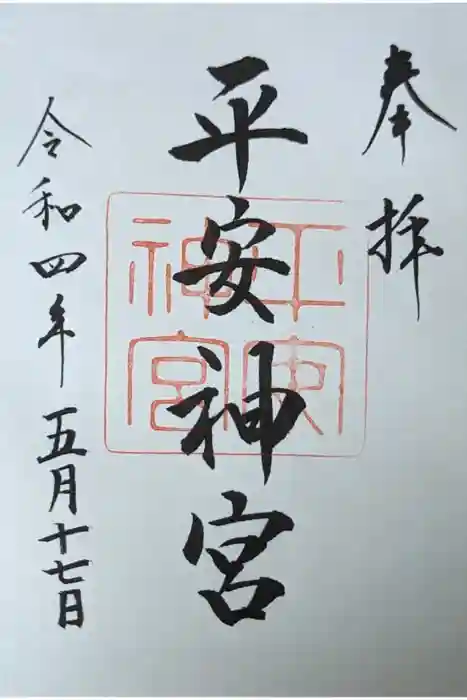 奉拝
平安神宮
平安神宮
令和四年五月十七日